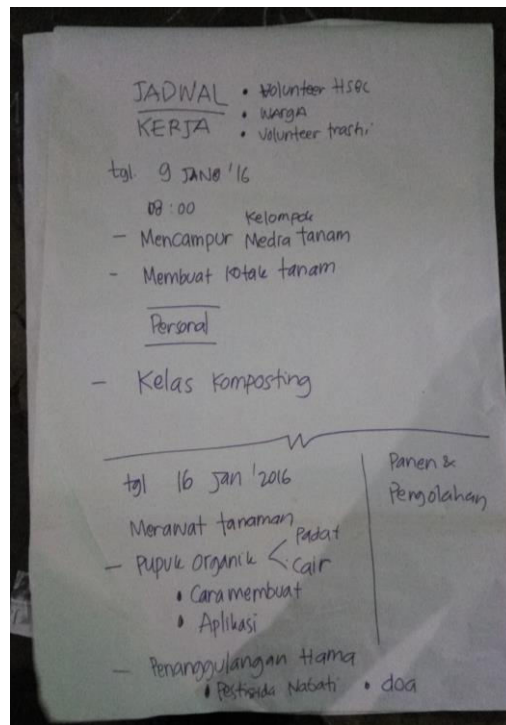 JADWAL
KERJA
• Volunteer HSBC
• WARGA
• Volunteer trashi
tgl. 9 JAN '16
08:00
Kelompok
- Mencampur Media tanam
- Membuat Kotak tanam
Personal
- Kelas Komposting
tgl 16 Jan '2016
Merawat tanaman
- Pupuk Organik < Padat
Cair
• Cara membuat
• Aplikasi
- Penanggulangan Hama
• Pestisida Nabati • doa
Panen &
Pengolahan